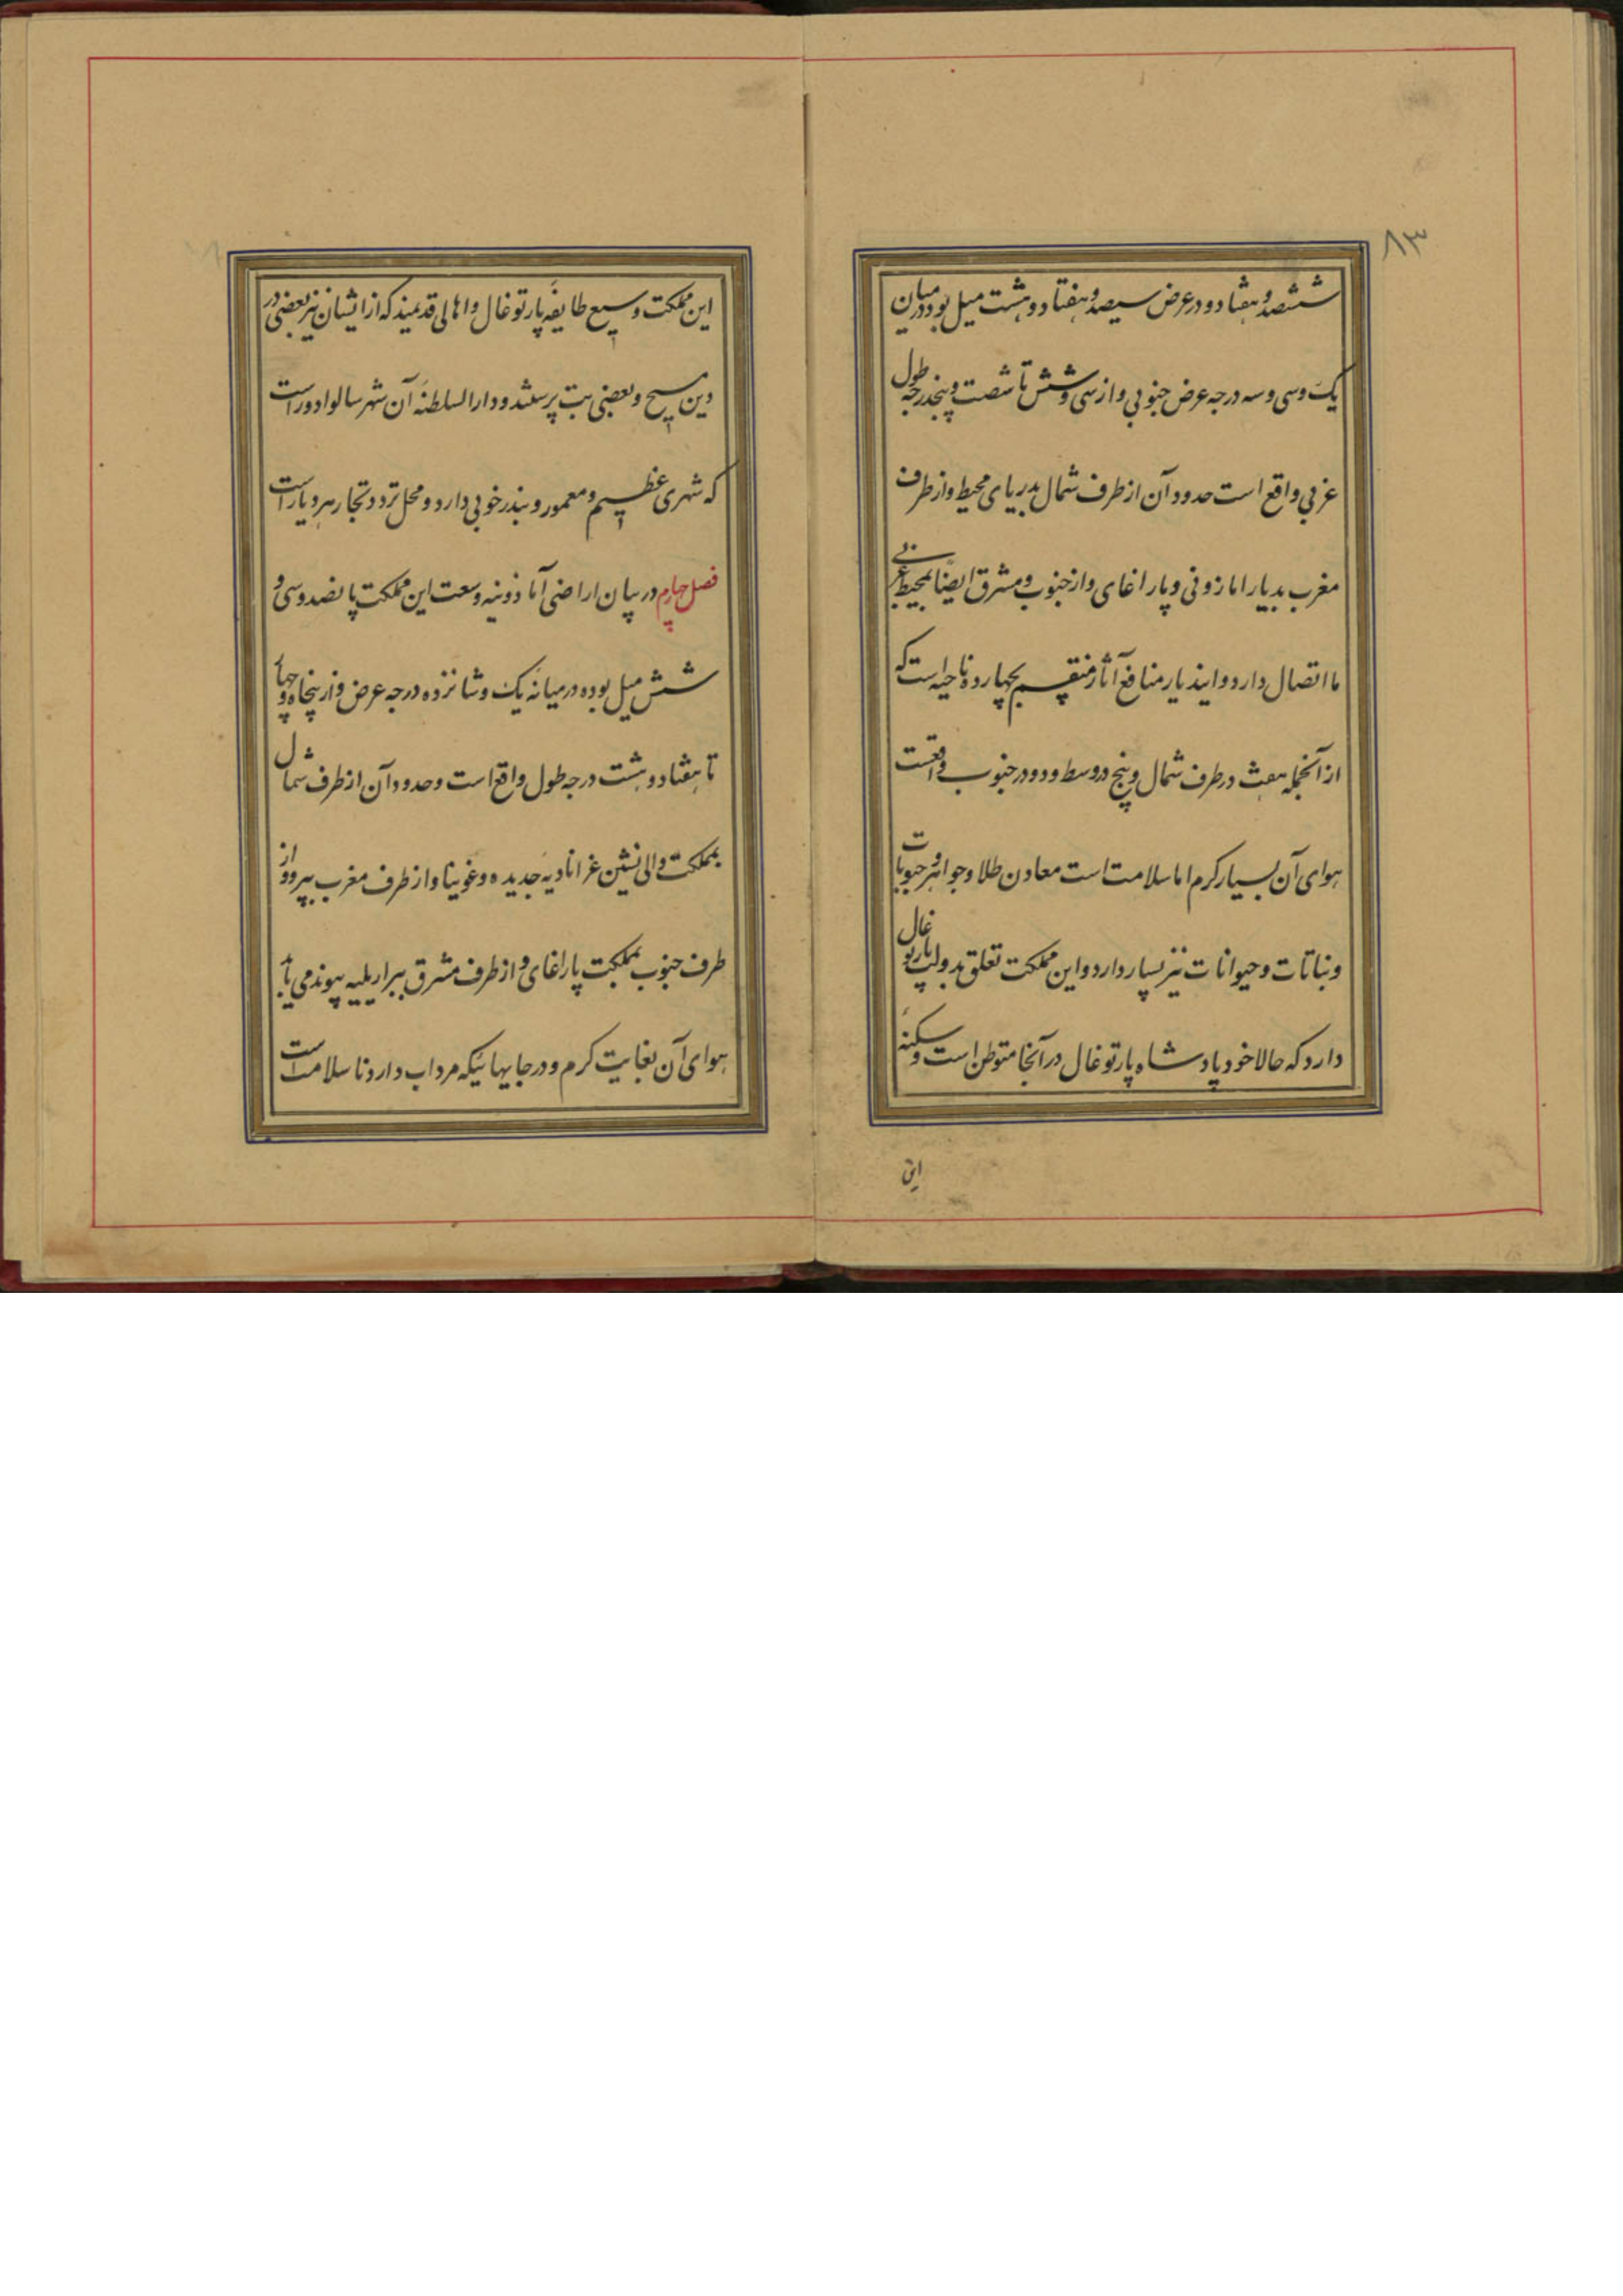 ۸۳
ششصد و هفتاد و در عرض سیصد و هفتاد و هشت میل بوده در میان
یک و سی و سه درجه عرض جنوبی و از سی و شش تا شصت و پنجدرجه طول
غربی واقع است حدود آن از طرف شمال بدریای محیط و از طرف
مغرب بدیار امازونی و پاراغای و از جنوب و مشرق ایضا بمحیط غربی
ما اتصال دارد و ایندیار منافع آثار منقسم بچهارده ناحیه است که
از آنجمله هفت در طرف شمال و پنج در وسط و دو در جنوب واقعست
هوای آن بسیار کرم اما سلامت است معادن طلا و جواهر و حبوبات
و نباتات و حیوانات نیز بسیار دارد و این مملکت تعلق بدولت پارتوغال
دارد که حالا خود پادشاه پارتوغال در آنجا متوطن است و سکنهٔ
این
این مملکت وسیع طایفهٔ پارتوغال و اهالی قدیمند که از ایشان نیز بعضی در
دین مسیح و بعضی بت پرستند و دار السلطنهٔ آن شهر سالوادور است
که شهری عظیم و معمور و بندر خوبی دارد و محل تردد تجار هر دیار است
فصل چهارم در بیان اراضی آماذونیه وسعت این مملکت پانصد و سی و
شش میل بوده در میانهٔ یک و شانزده درجه عرض و از پنجاه و چهار
تا هفتاد و هشت درجه طول واقع است و حدود آن از طرف شمال
بمملکت والی نشین غرانادیهٔ جدیده و غویانا و از طرف مغرب ببیرو و از
طرف جنوب بمملکت پاراغای و از طرف مشرق ببرازیلیه پیوند می یابد
هوای آن بغایت کرم و در جایهائیکه مرداب دارد ناسلامت است